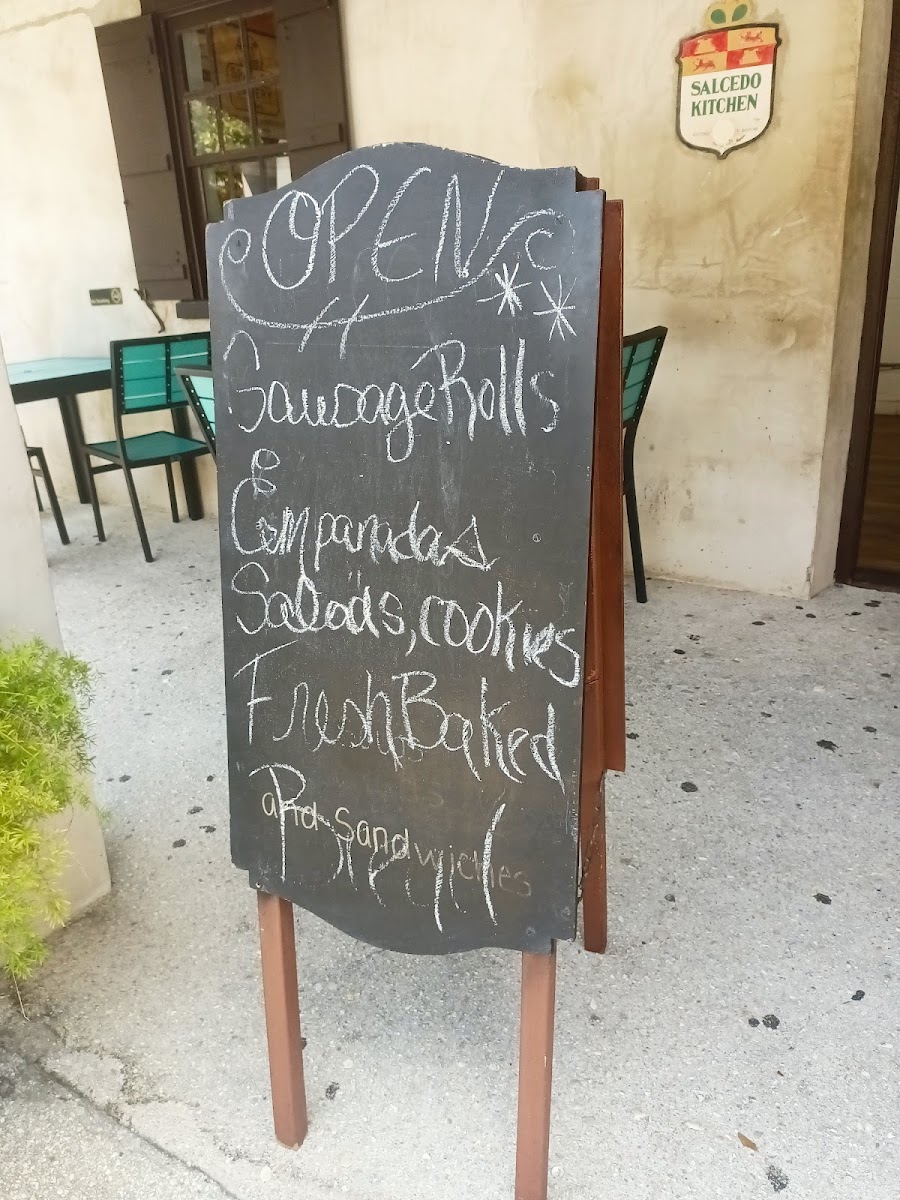 SALCEDO
KITCHEN
OPEN
Sausage Rolls
&
Empanadas
Salads, cookies
Fresh Baked
and sandwiches